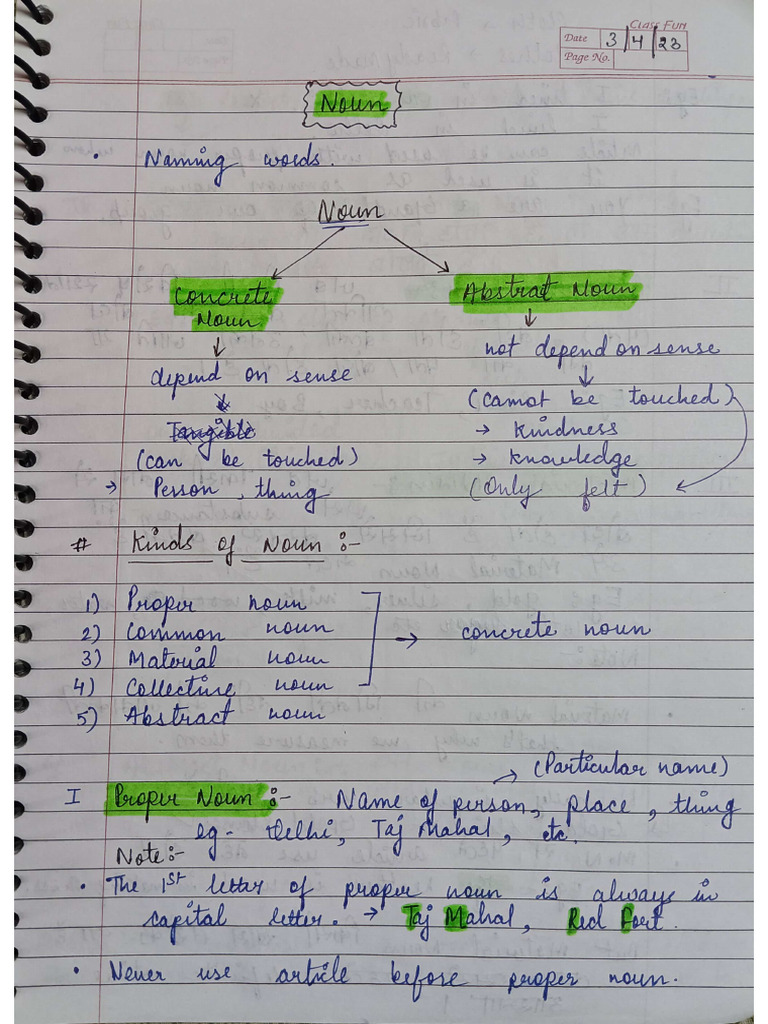 CLASS FUN
Date 3/4/23
Page No.
Noun
• Naming words.
Noun
Concrete Noun
Abstract Noun
depend on sense
not depend on sense
Tangible
(can be touched)
→ Person, thing
(cannot be touched)
→ kindness
→ knowledge
(Only felt)
# Kinds of Noun :-
1) Proper noun
2) Common noun
3) Material noun
4) Collective noun
→ concrete noun
5) Abstract noun
(Particular name)
I Proper Noun :- Name of person, place, thing
eg - Delhi, Taj Mahal, etc.
Note :-
• The 1st letter of proper noun is always in
capital letter. → Taj Mahal, Red Fort.
• Never use article before proper noun.